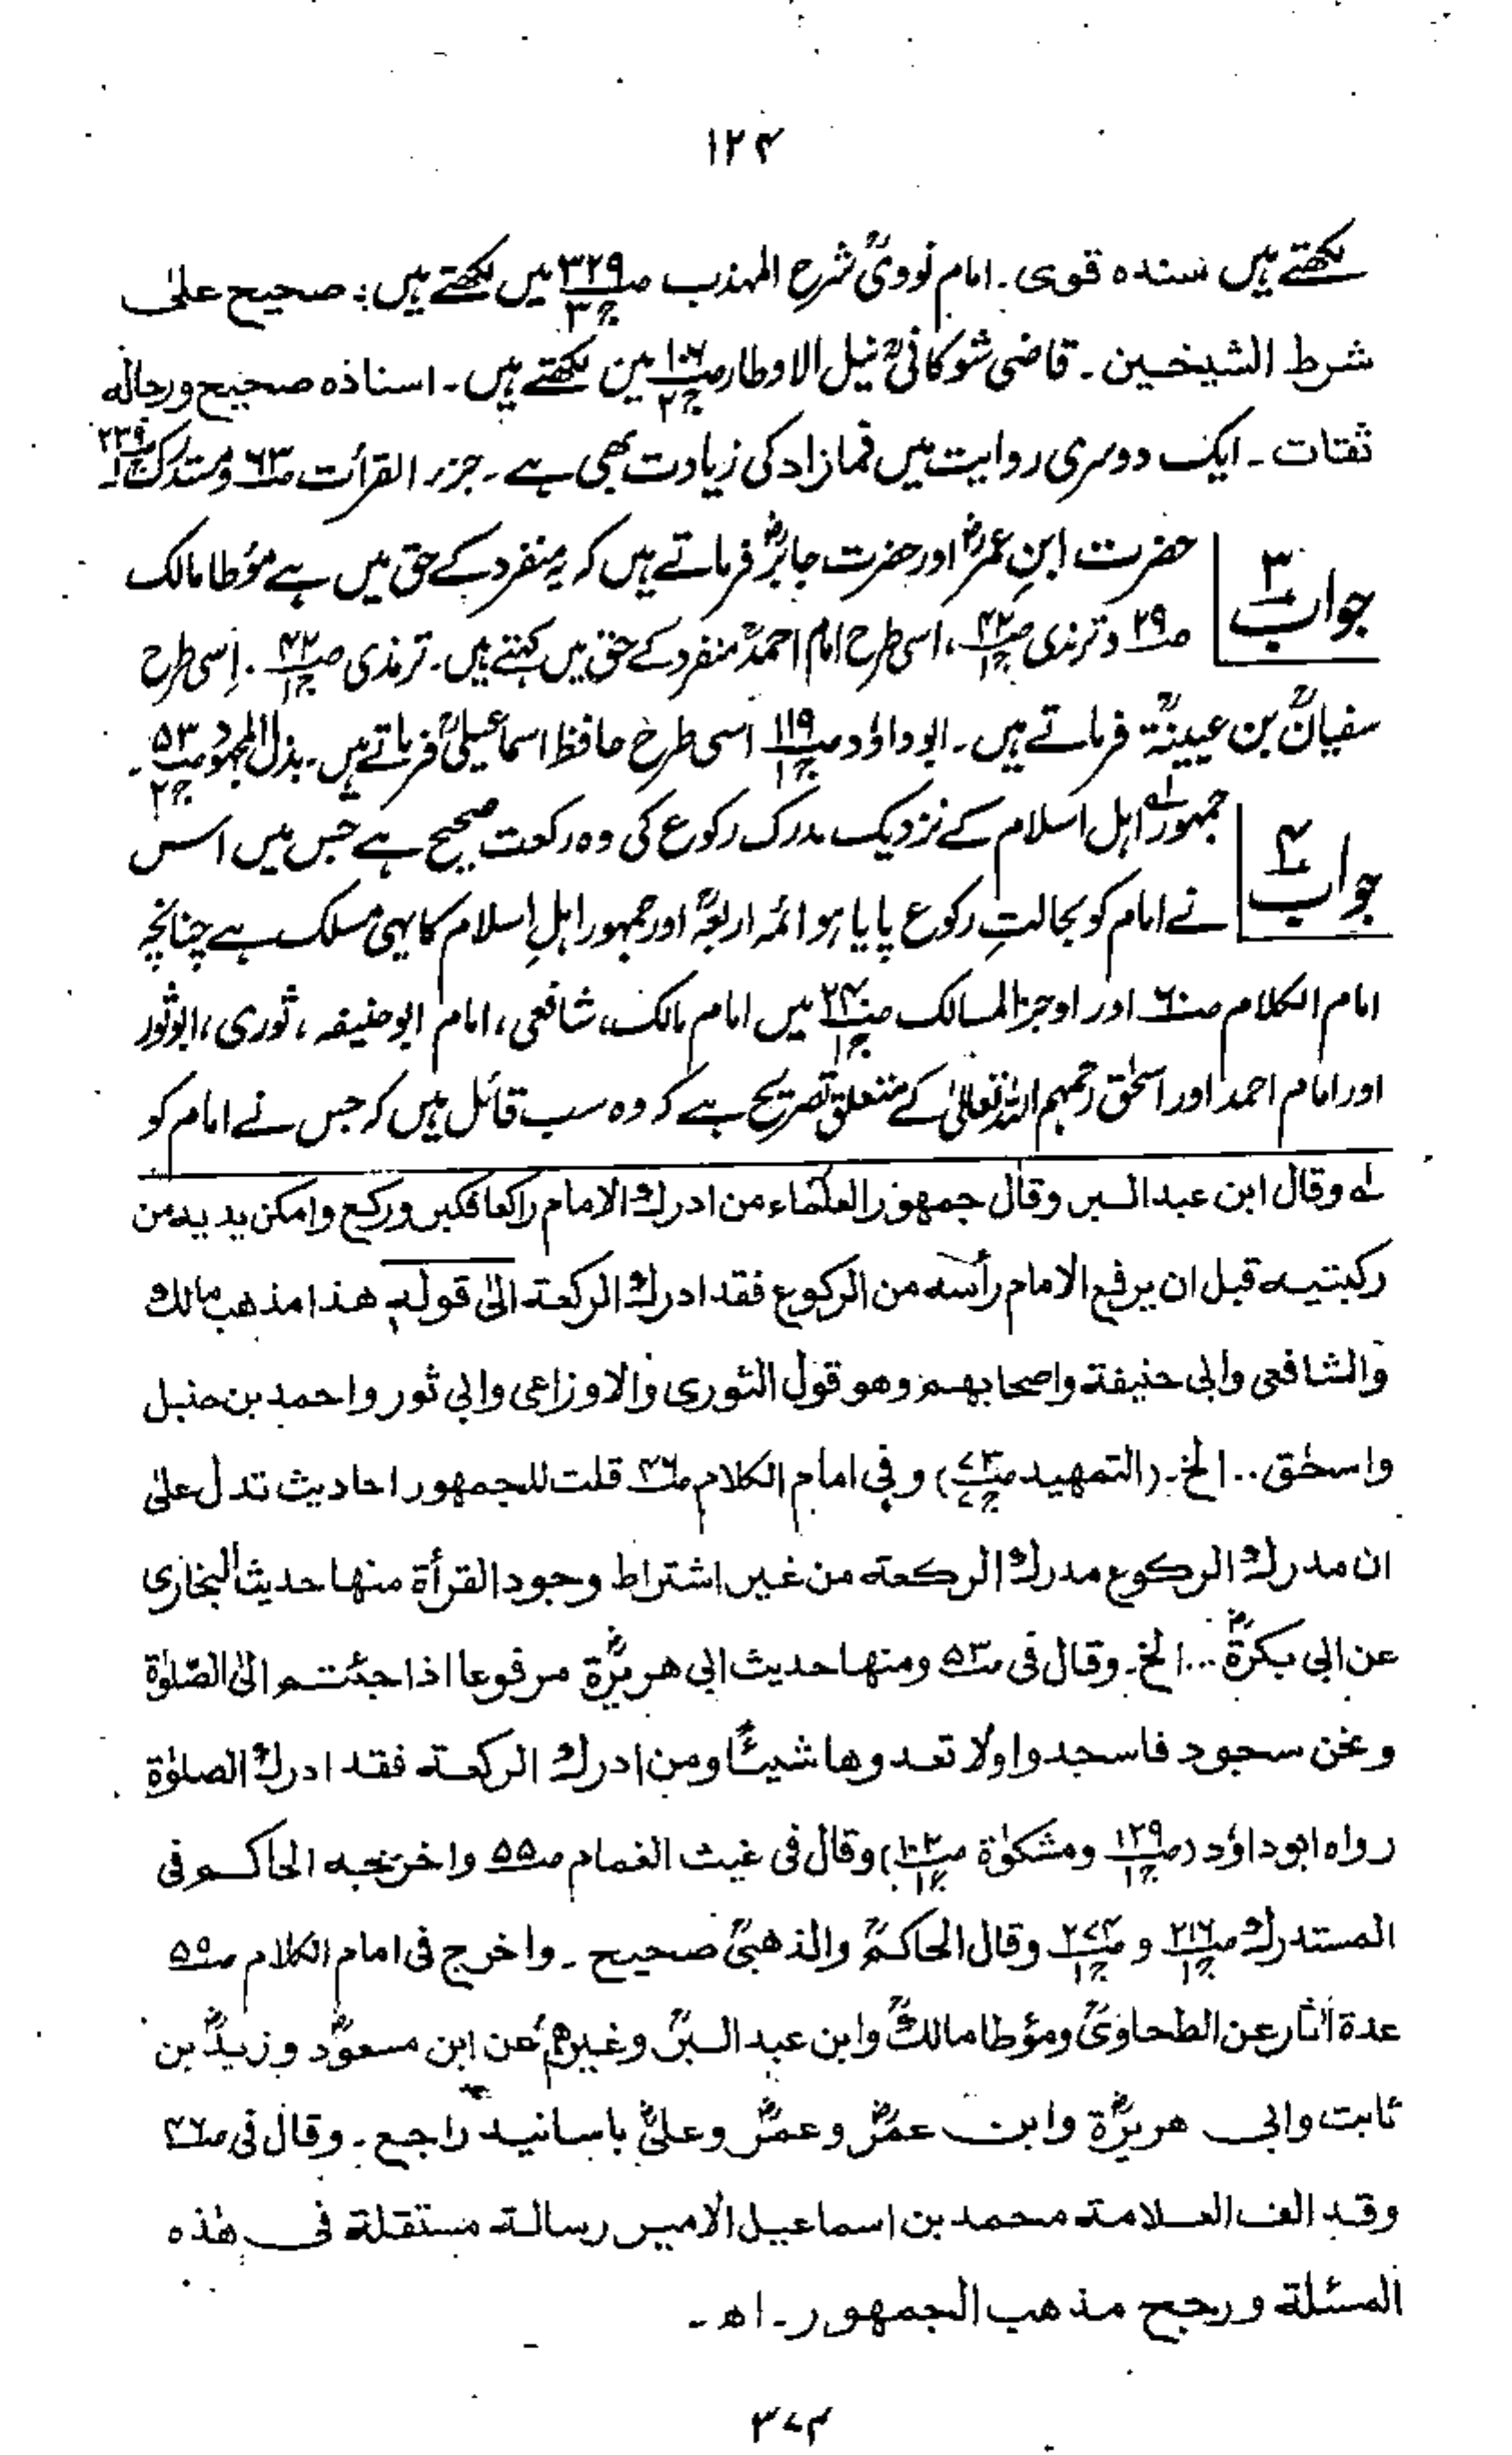 ۱۲۴
لکھتے ہیں سندہ قوی ۔ امام نوویؒ شرح المہذب ص۳۲۹ ج۳ میں لکھتے ہیں: صحیح علیٰ
شرط الشیخین ۔ قاضی شوکانیؒ نیل الاوطار ص۱۰۶ ج۲ میں لکھتے ہیں ۔ اسنادہ صحیح ورجالہ
ثقات ۔ ایک دوسری روایت میں فمازاد کی زیادت بھی ہے ۔ جزء القرأت ص۶۳ ومستدرک ص۲۳۹ ج۱
جواب ۳ حضرت ابنِ عمرؓ اور حضرت جابرؓ فرماتے ہیں کہ یہ منفرد کے حق میں ہے مؤطا مالک
ص۲۹ وترمذی ص۴۲ ج۱، اسی طرح امام احمدؒ منفرد کے حق میں کہتے ہیں ۔ ترمذی ص۴۲ ج۱ ۔ اِسی طرح
سفیانؒ بن عیینۃؒ فرماتے ہیں ۔ ابوداؤد ص۱۱۹ ج۱ اسی طرح حافظ اسماعیلیؒ فرماتے ہیں ۔ بذل المجہود ص۵۳ ج۲ ۔
جواب ۴ جمہور لہ اہل اسلام کے نزدیک مدرک رکوع کی وہ رکعت صحیح ہے جس میں اسس
نے امام کو بحالتِ رکوع پایا ہو ائمہ اربعہؒ اور جمہور اہلِ اسلام کا یہی مسلک ہے چنانچہ
امام الکلام ص۶۰ اور اوجز المسالک ص۲۴ ج۱ میں امام مالک، شافعی، امام ابوحنیفہ، ثوری، ابوثور
اور امام احمد اور اسحٰق رحمہم اللہ تعالیٰ کے متعلق تصریح ہے کہ وہ سب قائل ہیں کہ جس نے امام کو
لہ وقال ابن عبدالبر وقال جمهور العلماء من ادرك الامام راكعا فكبر وركع وامكن يديه من
ركبتيه قبل ان يرفع الامام رأسه من الركوع فقد ادرك الركعة الىٰ قوله هذا مذهب مالك
والشافعى وابى حنيفة واصحابهم وهو قول الثورى والاوزاعى وابى ثور واحمد بن حنبل
واسحٰق .. الخ ـ (التمهيد ص۷۳ ج۷) وفى امام الكلام ص۴۶ قلت للجمهور احاديث تدل علىٰ
ان مدرك الركوع مدرك الركعة من غير اشتراط وجود القرأة منها حديث البخارى
عن ابى بكرةؓ ... الخ ـ وقال فى ص۵۳ ومنها حديث ابى هريرةؓ مرفوعا اذا جئتم الى الصّلوٰة
ونحن سجود فاسجدوا ولا تعدوها شيئًا ومن ادرك الركعة فقد ادرك الصلوٰة
رواه ابوداؤد (ص۱۲۹ ج۱ ومشكوٰة ص۱۰۲ ج۱) وقال فى غيث الغمام ص۵۵ واخرجه الحاكم فى
المستدرك ص۲۱۶ ج۱ و ص۲۷۴ ج۱ وقال الحاكمؒ والذهبىؒ صحيح ـ واخرج فى امام الكلام ص۵۹
عدة اٰثار عن الطحاوىؒ ومؤطا مالكؒ وابن عبدالبرؒ وغيرهمؒ عن ابن مسعودؓ وزيدؓ بن
ثابت وابى هريرةؓ وابن عمرؓ وعمرؓ وعلىؓ باسانيد راجع ـ وقال فى ص۴۶
وقد الف العلامة محمد بن اسماعيل الامير رسالة مستقلة فى هٰذه
المسئلة ورجح مذهب الجمهور ـ اھ ـ
۳۷۴